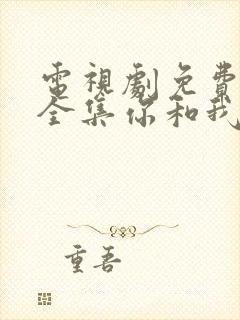 電視劇免費
全集你和我
重吾